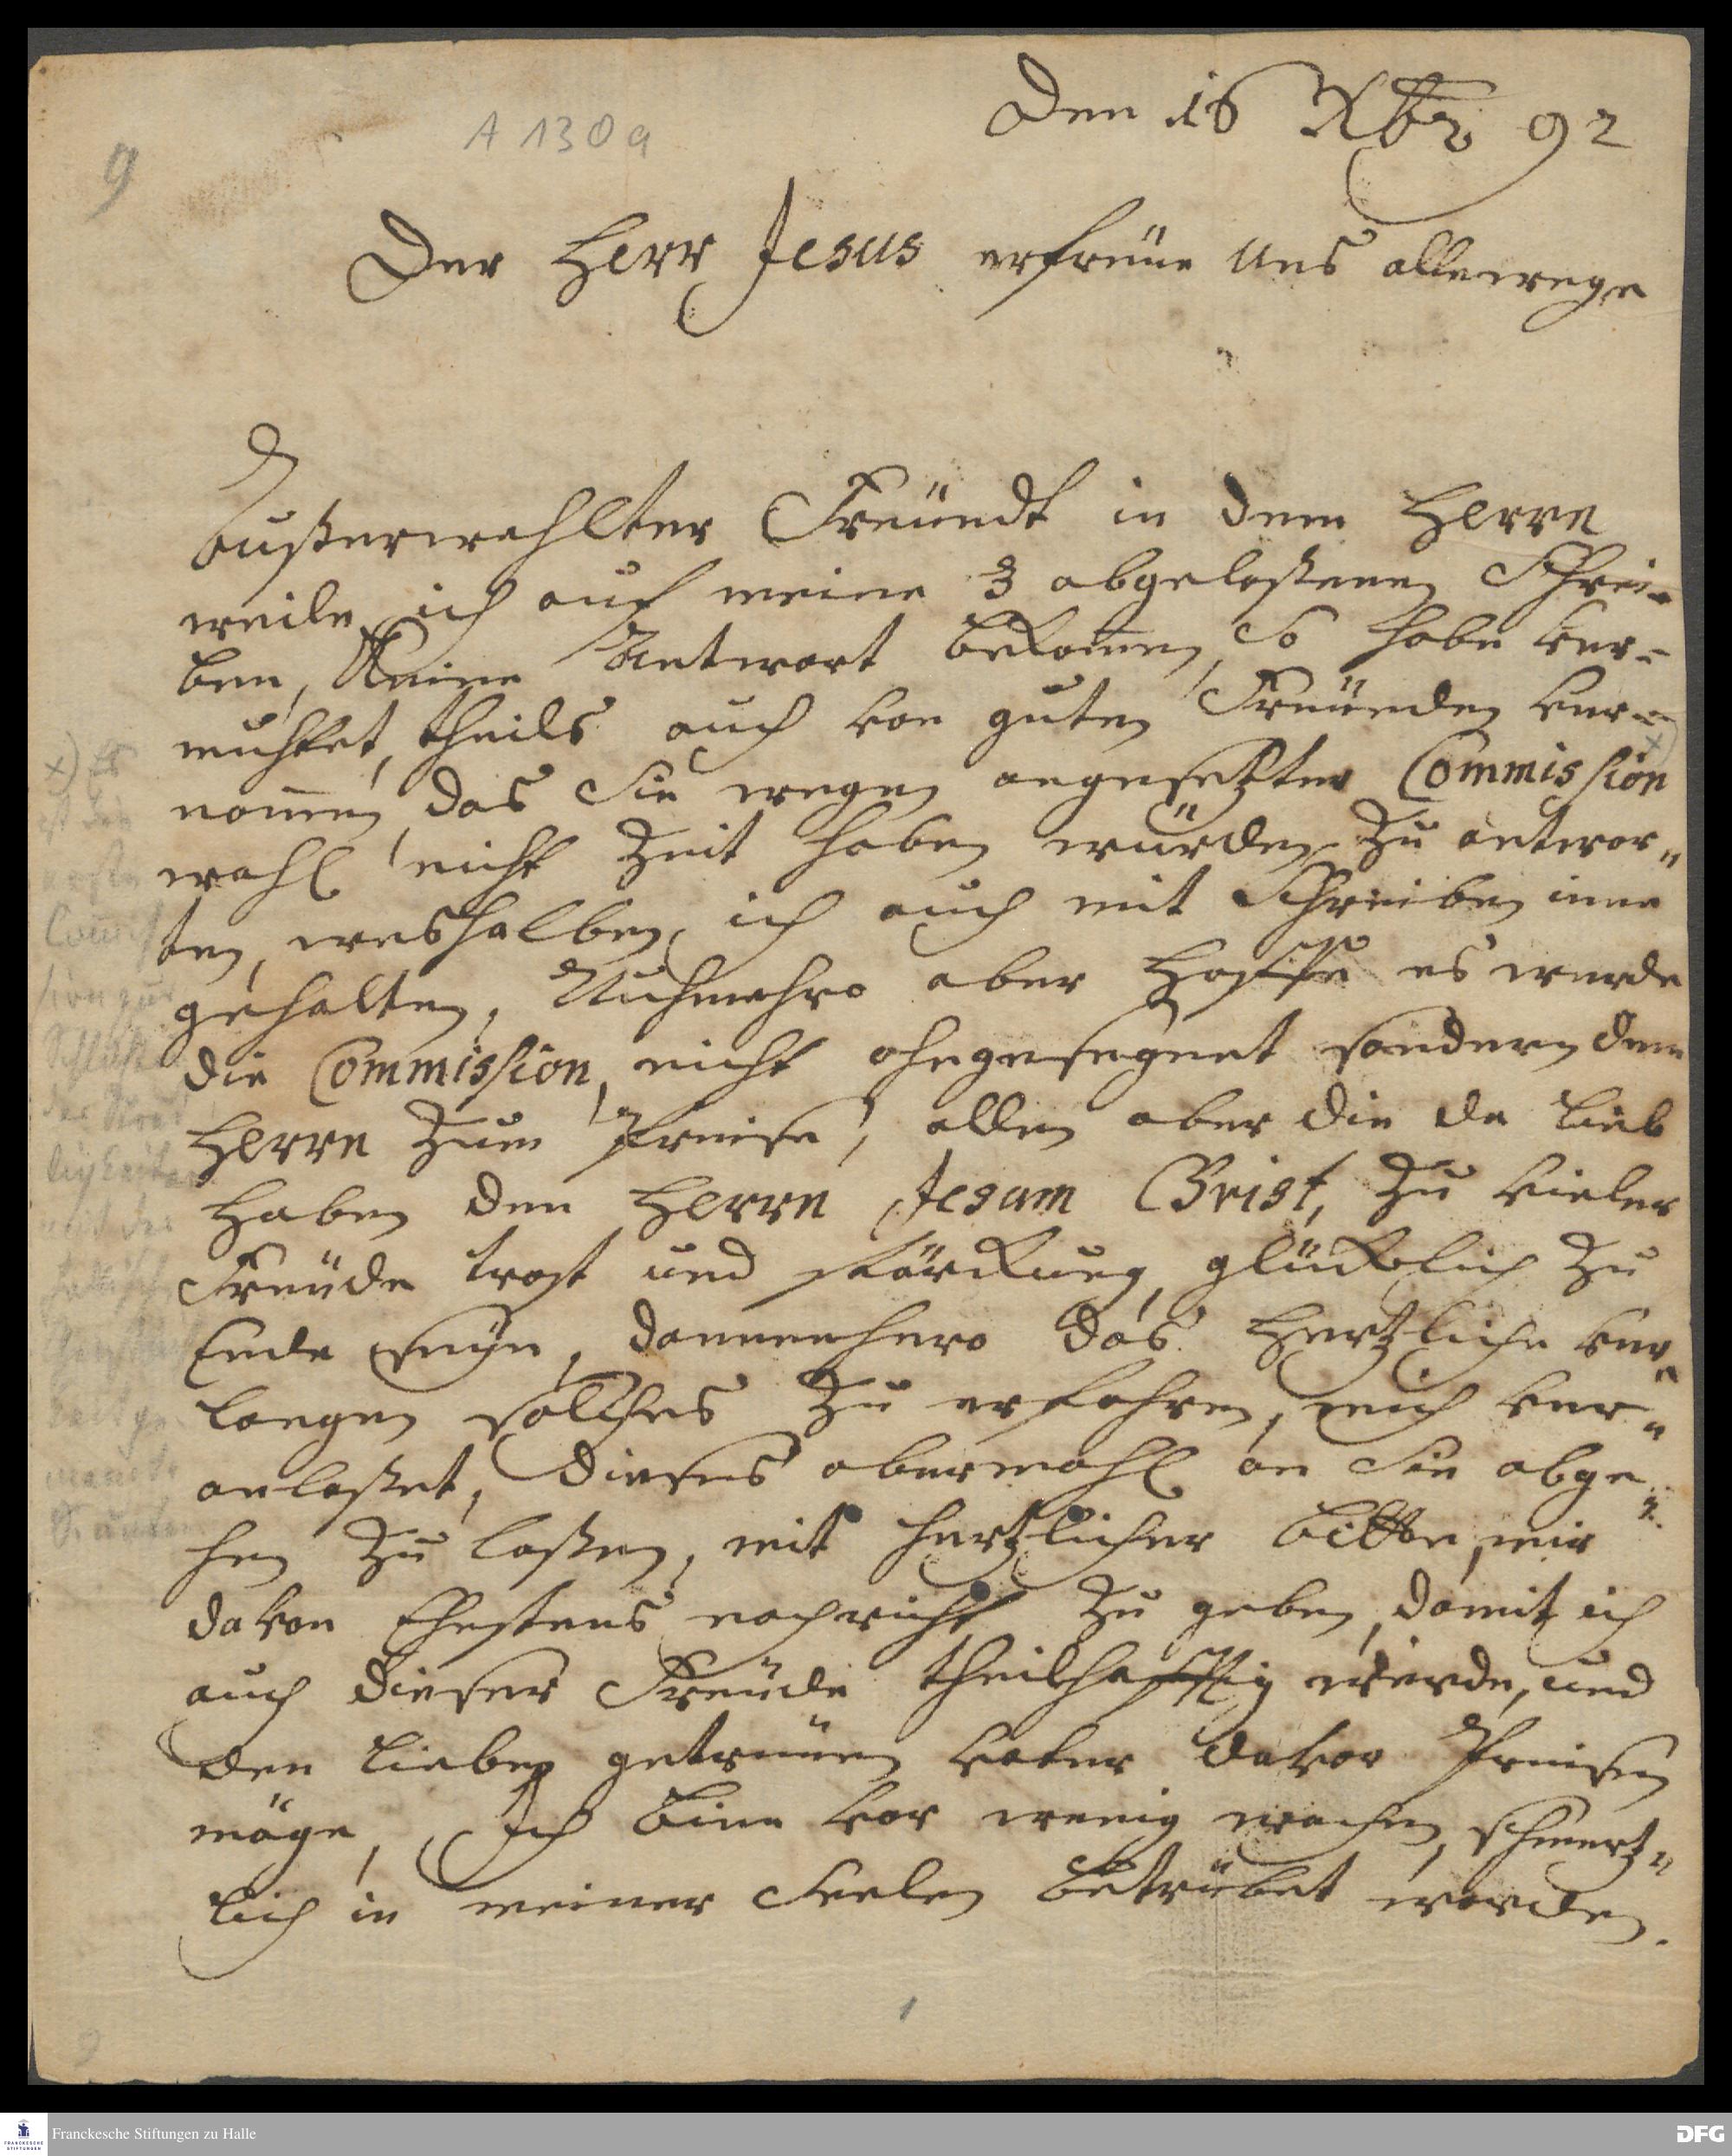 9
A 130 a
Den 16 Xbr 92
Der Herr Jesus erfreue Uns allewege
Außerwehlter Freündt in dem Herrn
weile ich auf meine 3 abgelaßenen Schrei-
ben, Keine Antwort bekomen, So habe ver-
muhtet, theils auch von guten Freünden ver-
nomen, das Sie wegen angesetzter Commission x)
wohl nicht Zeit haben würden zu antwor-
ten, weshalben, ich auch mit Schreiben inne
gehalten, Nuhmehro aber Hoffe es werde
die Commission, nicht ohngesegnet sondern dem
Herrn zum Preise, allen aber die da lieb
Haben den Herrn Jesum Christ, zu vieler
Freüde trost und stärkung, glücklich zu
Ende seyn, dannenhero das Hertzliche ver-
langen solches zu erfahren, mich ver-
anlaßet, dieses abermahl an Sie abge-
hen zu laßen, mit hertzlicher bitte, mir
davon Ehestens nachricht zu geben, damit ich
auch dieser Freüde theilhafftig werde, und
den lieben getreüen vater davor Preisen
möge, Ich bine vor wenig wochen, schmertz-
lich in meiner Seelen betrübet worden.
x) Es
ist die
erste
Commis
sion zur
Schlicht
der Strei
tigkeiten
mit der
hallisch
1
Franckesche Stiftungen zu Halle
FRANCKESCHE
STIFTUNGEN
DFG